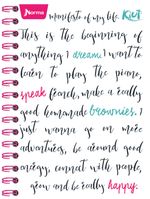 Norma
manifesto of my life. Kiut
This is the beginning of
anything I dream. I want to
learn to play the piano,
speak french, make a really
good homemade brownies. I
just wanna go on more
adventures, be around good
energy, connect with people,
grow and be really happy.